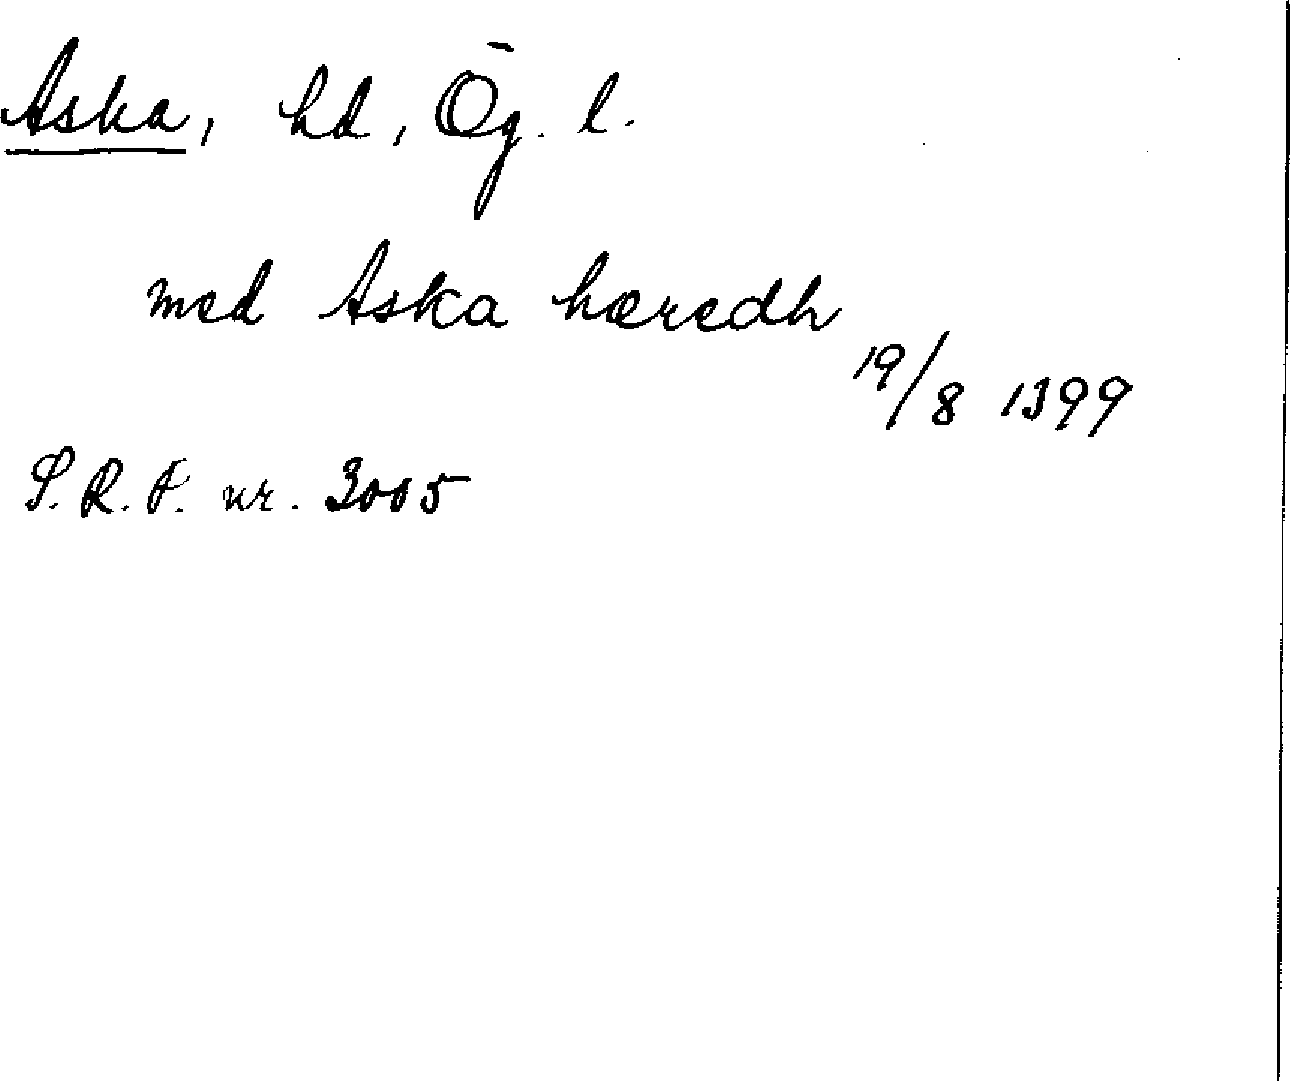 Aska, hd, Ög. l.
med Aska hæredh
19/8 1399
S.R.P. nr. 3005